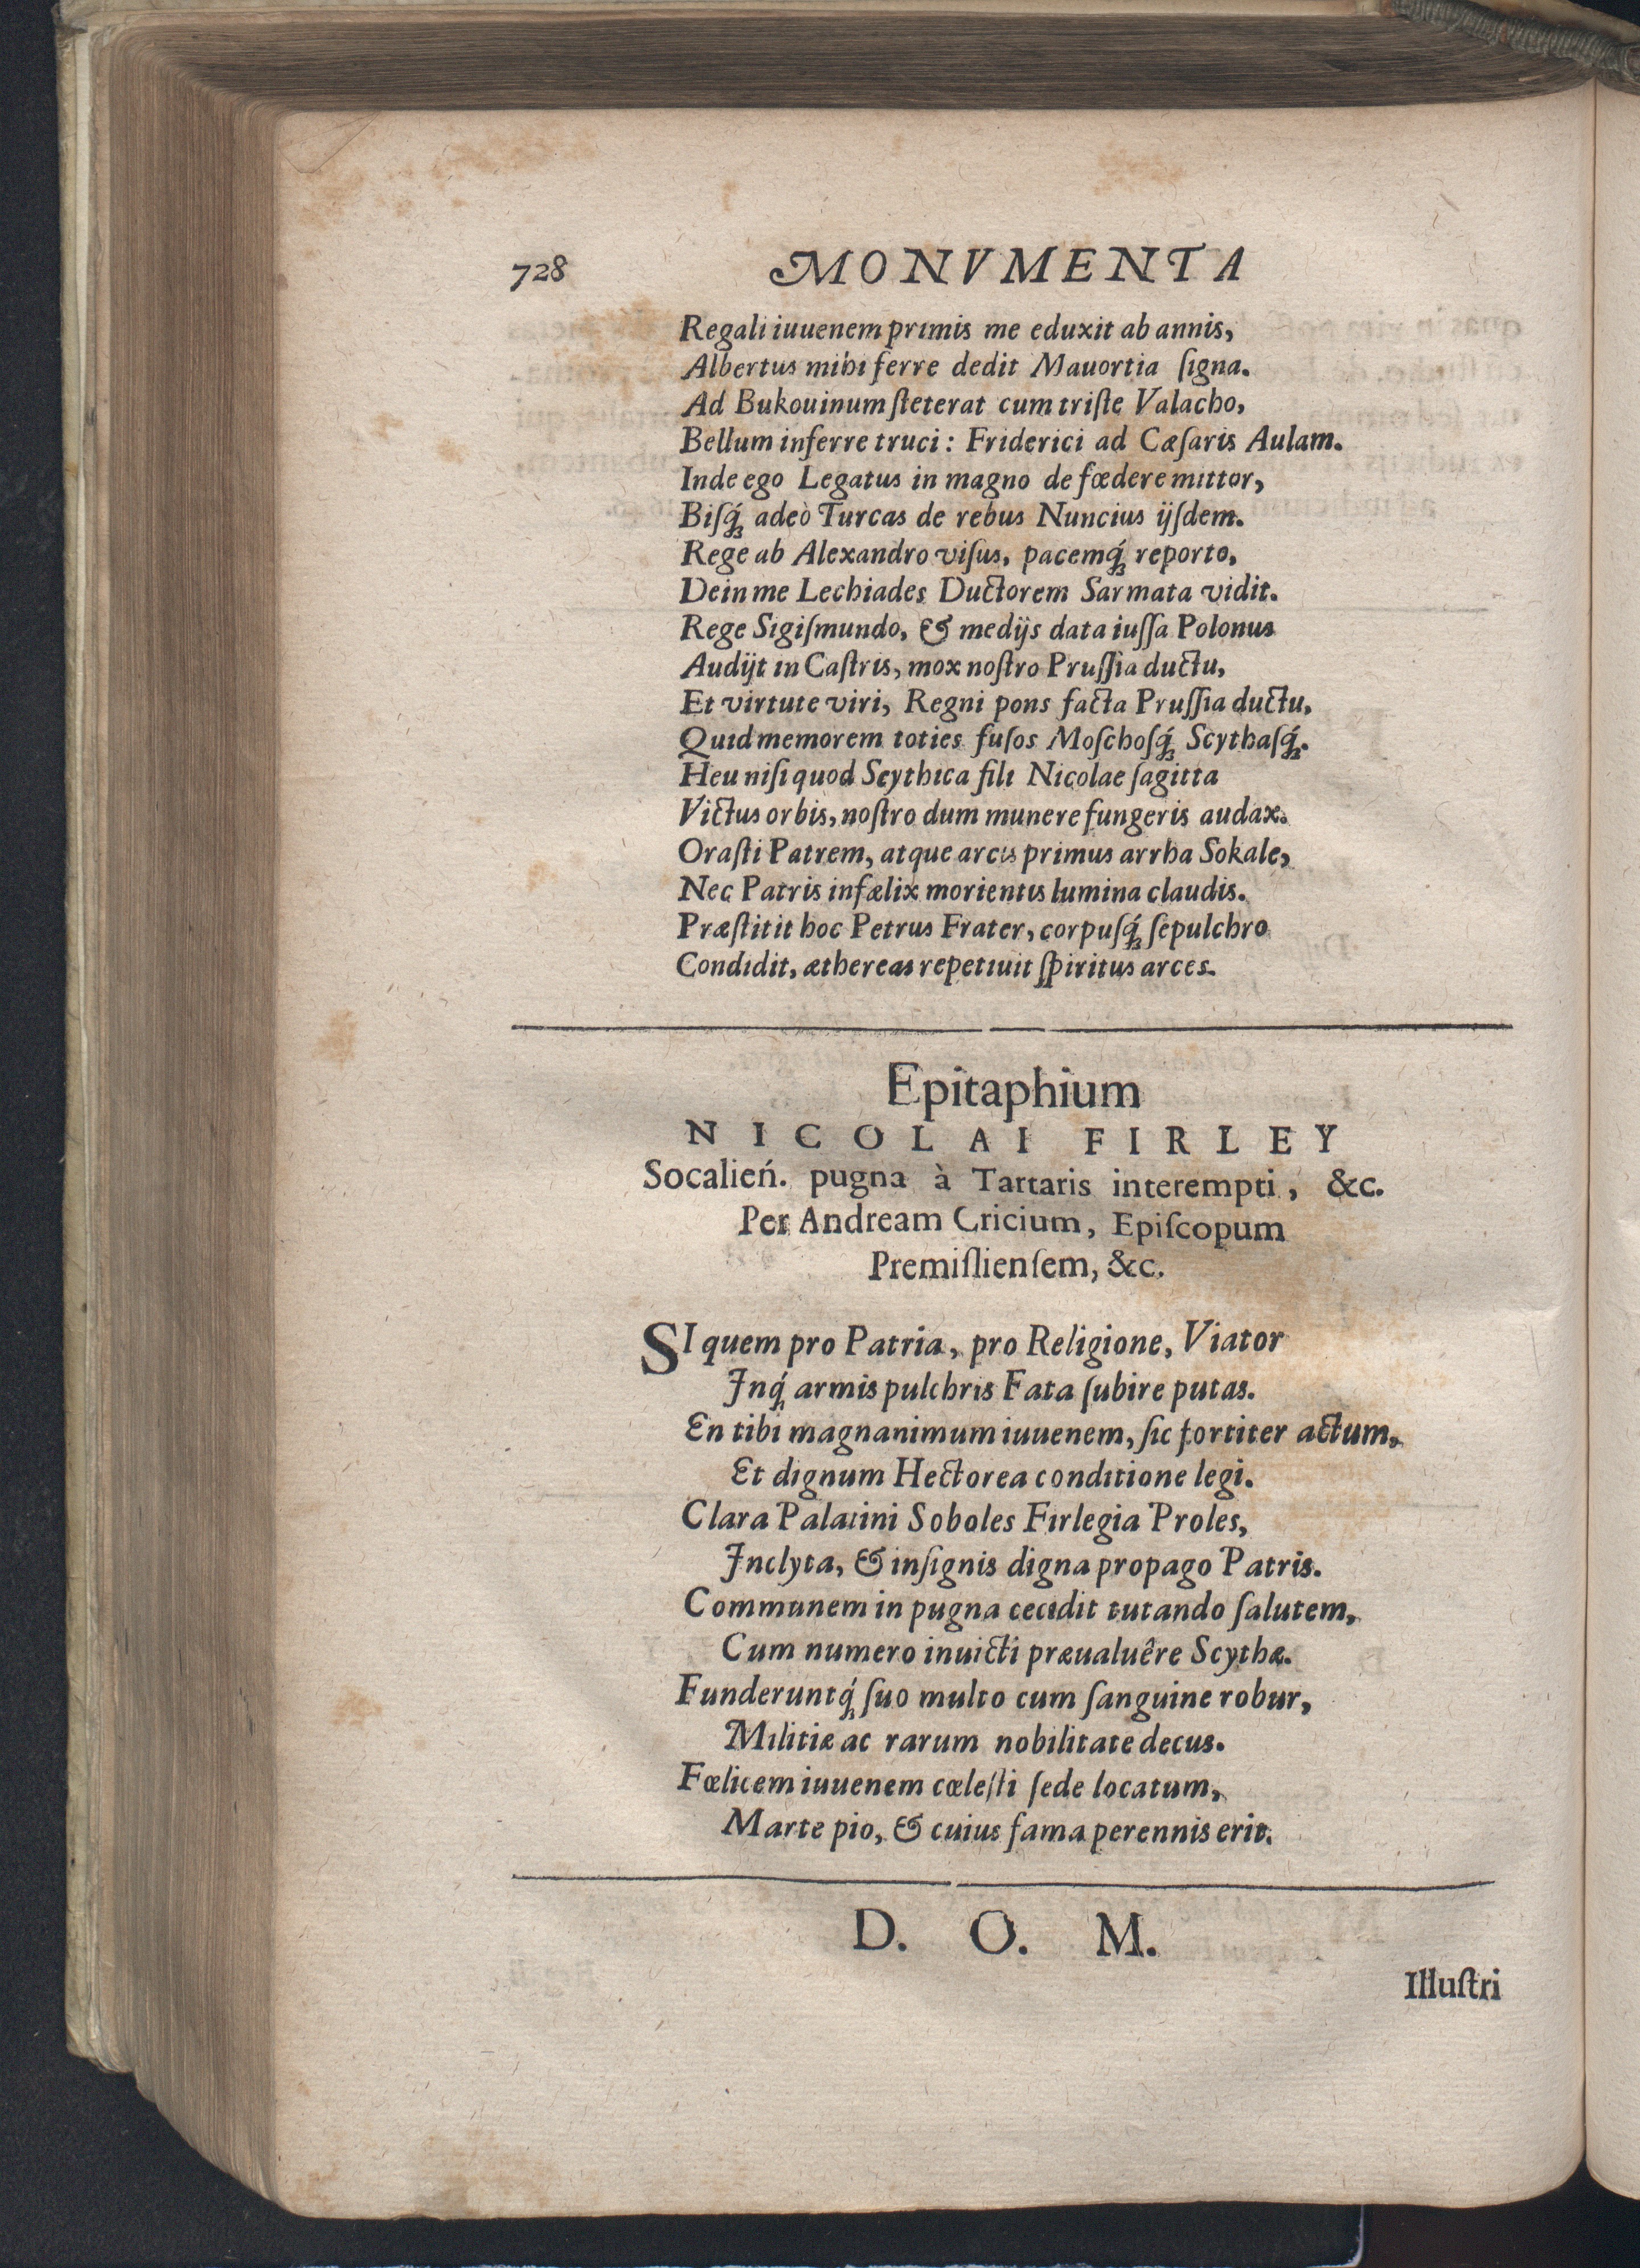 728 MONVMENTA
Regali iuuenem primis me eduxit ab annis,
Albertus mihi ferre dedit Mauortia ſigna.
Ad Bukouinum ſteterat cum triſte Valacho,
Bellum inferre truci: Friderici ad Cæſaris Aulam.
Inde ego Legatus in magno de fœdere mittor,
Biſq́ꝫ adeò Turcas de rebus Nuncius ijſdem.
Rege ab Alexandro viſus, pacemq́ꝫ reporto,
Dein me Lechiades Ductorem Sarmata vidit.
Rege Sigiſmundo, & medijs data iuſſa Polonus
Audijt in Caſtris, mox noſtro Pruſſia ductu,
Et virtute viri, Regni pons facta Pruſſia ductu,
Quid memorem toties fuſos Moſchoſq́ꝫ Scythaſq́ꝫ.
Heu niſi quod Scythica fili Nicolae ſagitta
Victus orbis, noſtro dum munere fungeris audax.
Oraſti Patrem, atque arcis primus arrha Sokale,
Nec Patris infælix morientis lumina claudis.
Præſtitit hoc Petrus Frater, corpuſq́ꝫ ſepulchro
Condidit, æthereas repetiuit ſpiritus arces.
Epitaphium
NICOLAI FIRLEY
Socalień. pugna à Tartaris interempti, &c.
Per Andream Cricium, Epiſcopum
Premiſlienſem, &c.
SI quem pro Patria, pro Religione, Viator
Inq́ꝫ armis pulchris Fata ſubire putas.
En tibi magnanimum iuuenem, ſic fortiter actum,
Et dignum Hectorea conditione legi.
Clara Palatini Soboles Firlegia Proles,
Inclyta, & inſignis digna propago Patris.
Communem in pugna cecidit tutando ſalutem,
Cum numero inuicti præualuêre Scythæ.
Funderuntq́ꝫ ſuo multo cum ſanguine robur,
Militiæ ac rarum nobilitate decus.
Fœlicem iuuenem cœleſti ſede locatum,
Marte pio, & cuius fama perennis erit.
D. O. M.
Illuſtri